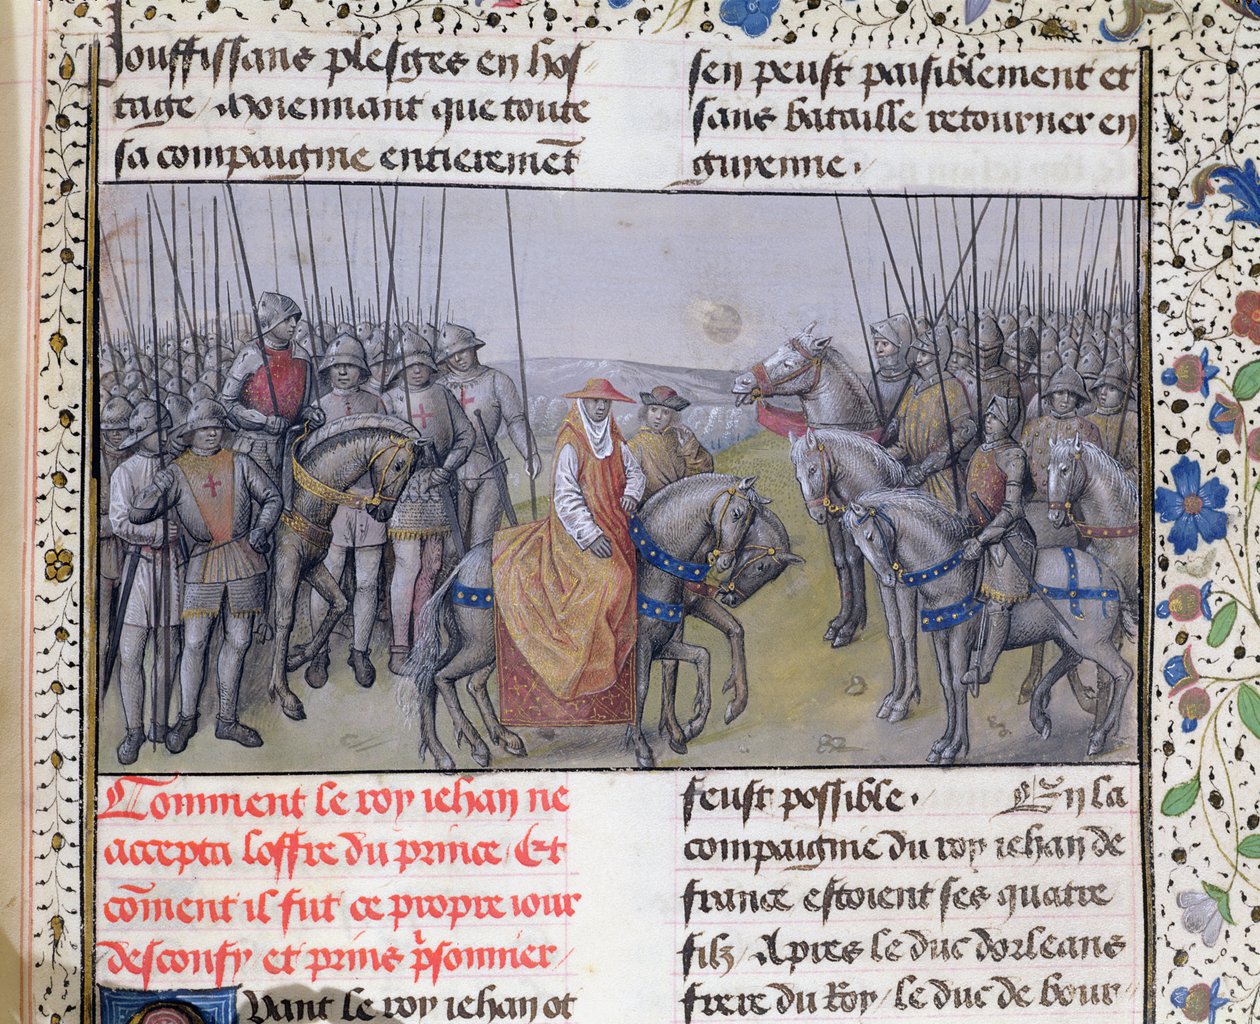 souffissans plesges en hos
tage / Moiennant que toute
sa compaignie entieremēt
sen peust paisiblement et
sans bataille retourner en
guyenne.
Comment le roy iehan ne
accepta loffre du prince / Et
cōment il fut ce propre iour
desconfy et prins p̄sonnier /
Quant le roy iehan ot
feust possible. En la
compaignie du roy iehan de
france estoient ses quatre
filz / Apres le duc dorleans
frere du Roy / le duc de bour